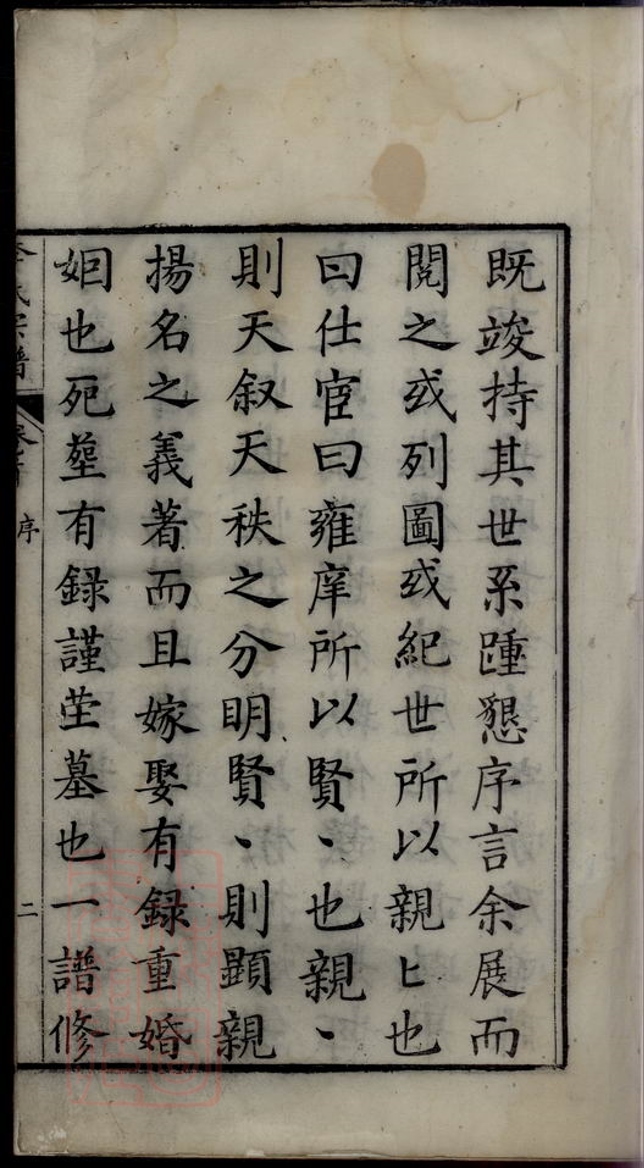 既竣持其世系踵懇序言余展而
閱之或列圖或紀世所以親〻也
曰仕宦曰雍庠所以賢丶也親丶
則天叙天秩之分明賢丶則顯親
揚名之義著而且嫁娶有録重婚
姻也死塟有録謹茔墓也一譜修
氏宗譜 序 二